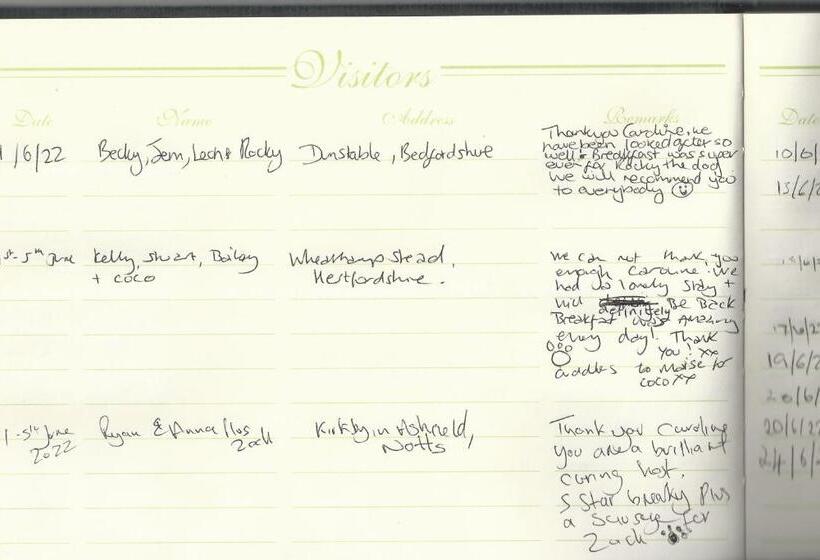 Visitors
Date Name Address Remarks Date
1/6/22 Becky, Jem, Leah & Rocky Dunstable, Bedfordshire
Thankyou Caroline, we
have been looked after so
well. Breakfast was super
even for Rocky the dog
we will recommend you
to everybody
1st-5th June Kelly, Stuart, Bailey
+ coco
Wheathampstead,
Hertfordshire.
we can not thank you
enough Caroline. We
had a lovely stay +
will definitely Be Back
Breakfast was Amazing
every day! Thank
you! xx
cuddles to Maise for
coco xx
1-5th June
2022
Ryan & Anna Plus
Zach
Kirkby in Ashfield,
Notts
Thank you Caroline
you are a brilliant
caring host.
5 Star breaky Plus
a Sausage for
Zach
10/6/
15/6/2
17/6/2
19/6/2
20/6/
20/6/22
24/6/2